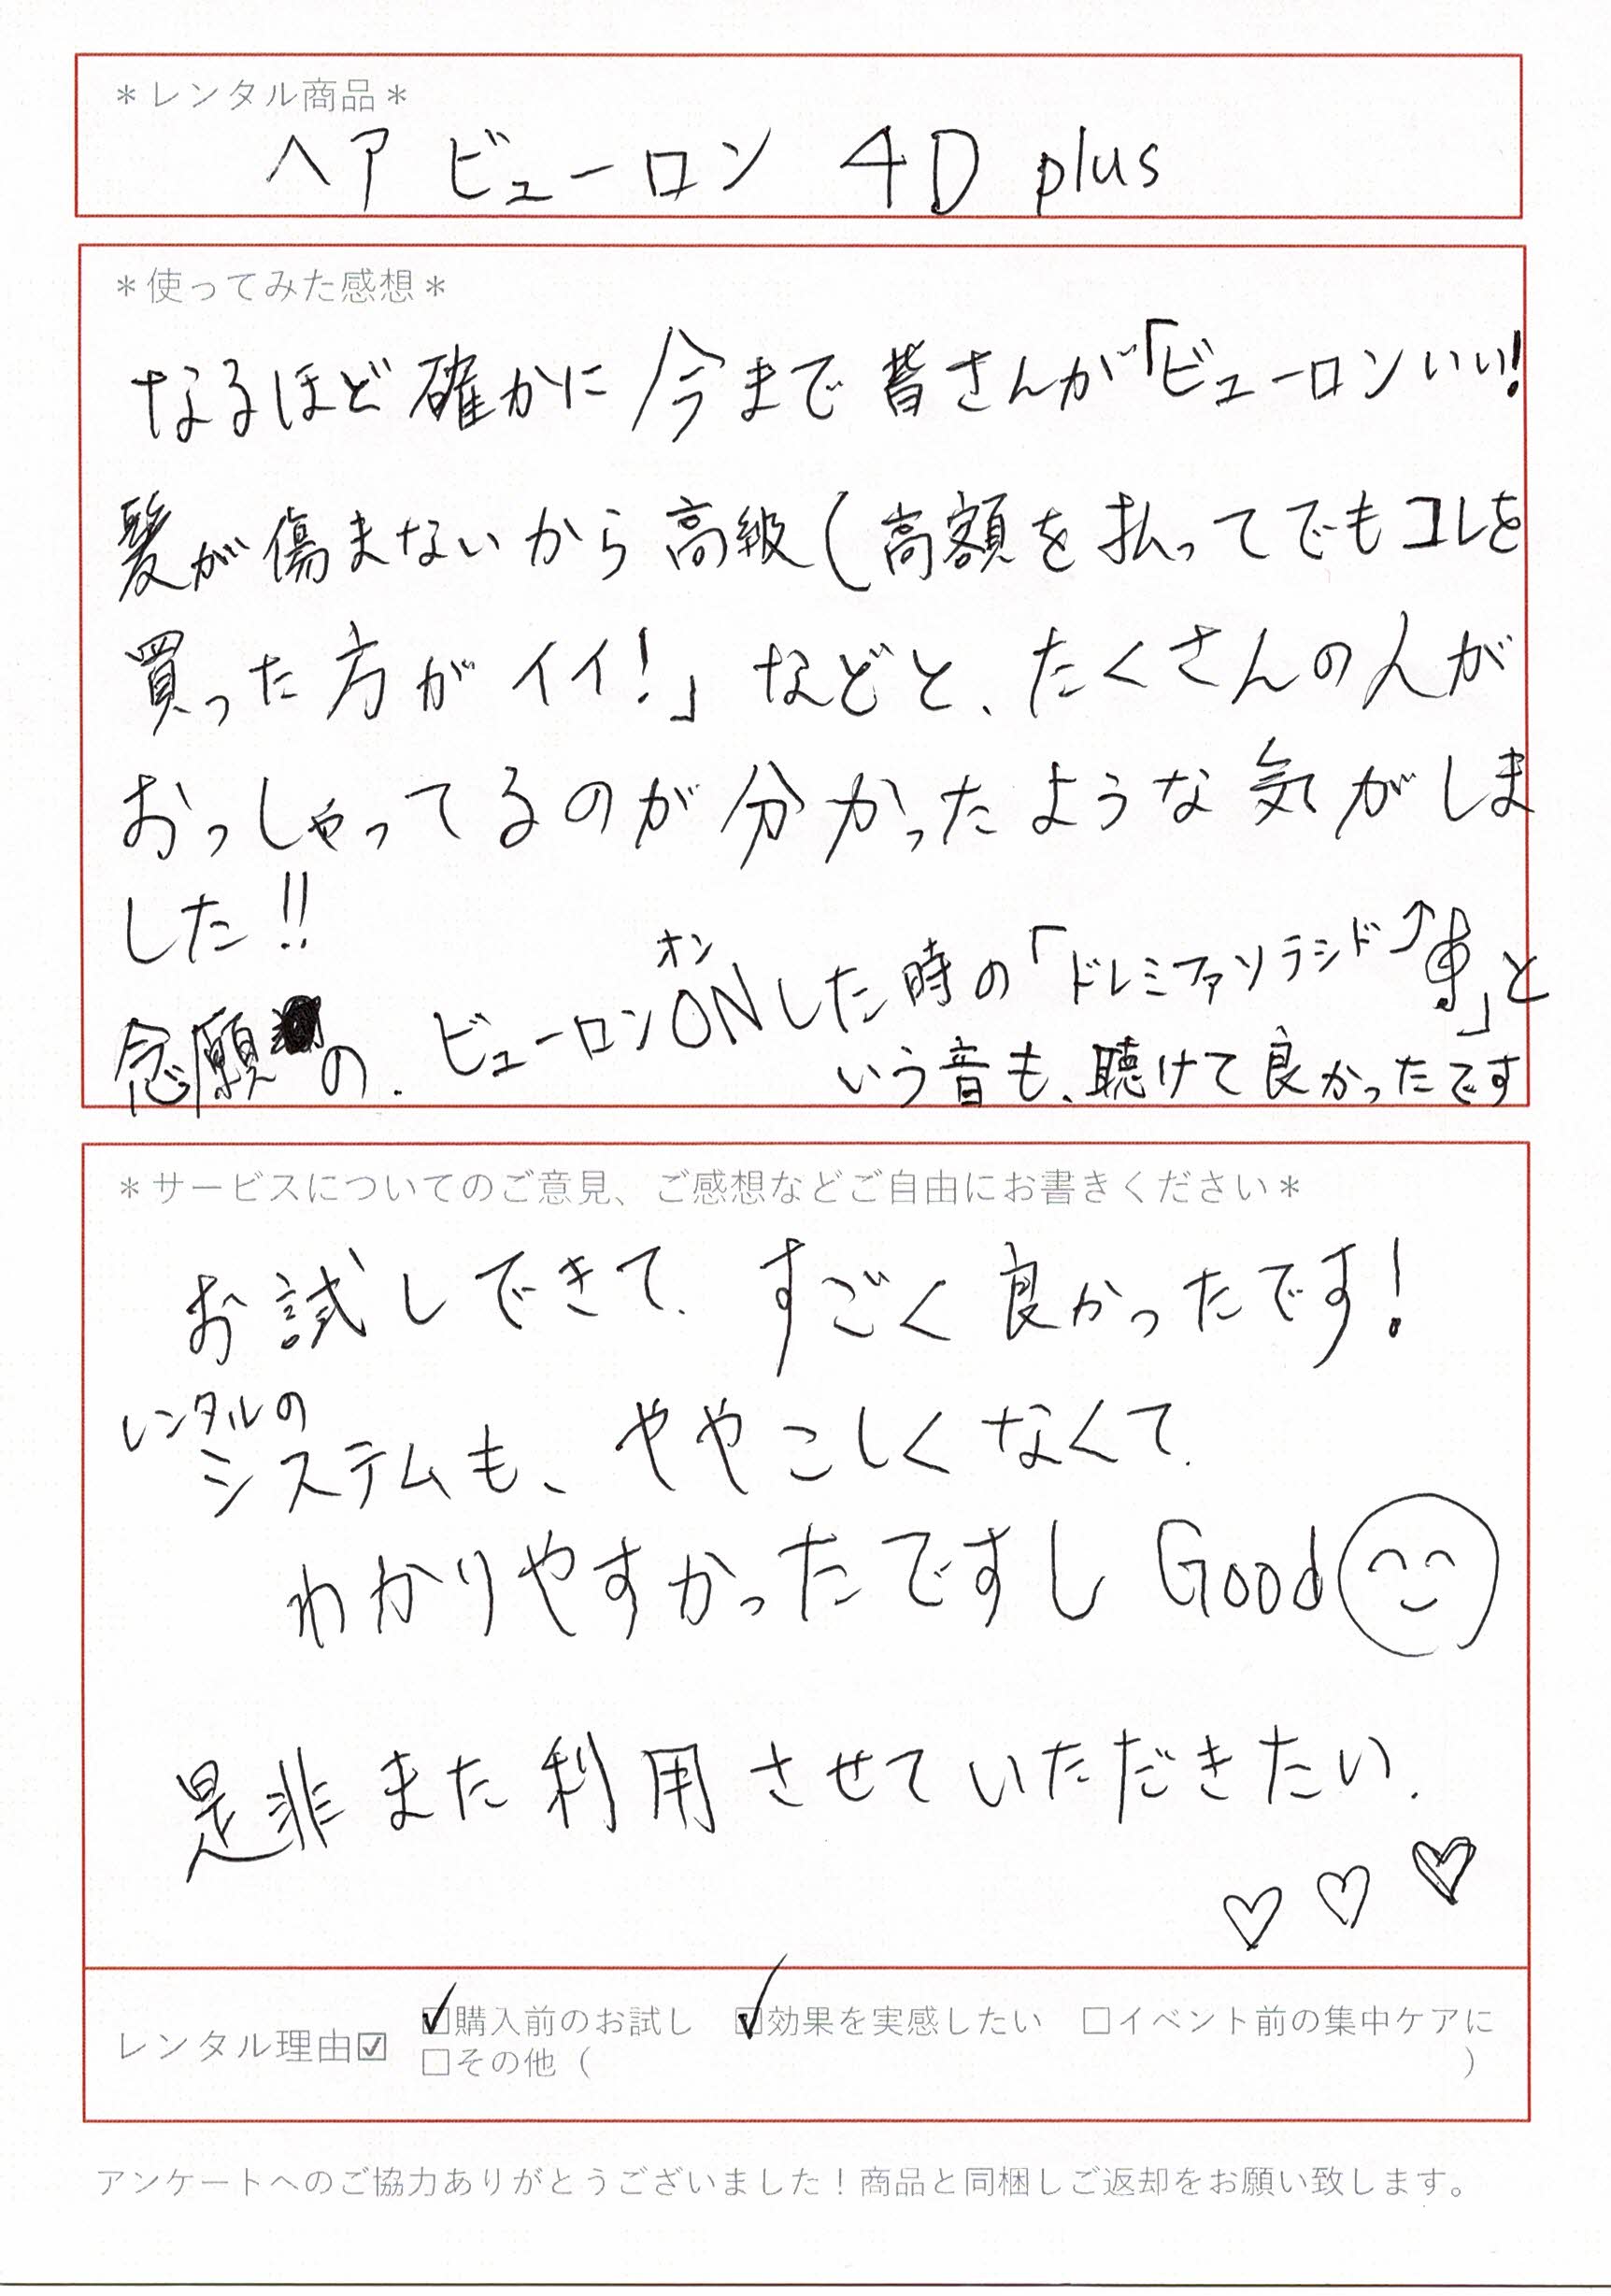 ＊レンタル商品＊
ヘアビューロン 4D plus
＊使ってみた感想＊
なるほど確かに今まで皆さんが「ビューロンいい!
髪が傷まないから高級(高額を払ってでもコレを
買った方がイイ!」などと、たくさんの人が
おっしゃってるのが分かったような気がしま
した!!
念願の、ビューロンONした時の「ドレミファソラシド↑」と
オン
いう音も、聴けて良かったです
＊サービスについてのご意見、ご感想などご自由にお書きください＊
お試しできて、すごく良かったです!
レンタルの
システムも、ややこしくなくて、
わかりやすかったですし Good
是非また利用させていただきたい。
♡ ♡ ♡
レンタル理由☑ ☑購入前のお試し ☑効果を実感したい □イベント前の集中ケアに
□その他（ ）
アンケートへのご協力ありがとうございました！商品と同梱しご返却をお願い致します。